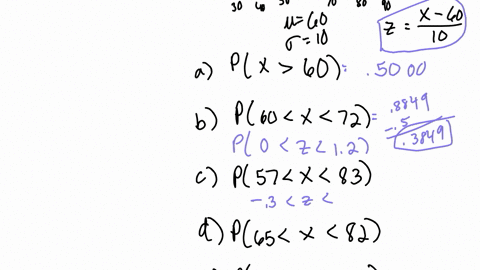 30 40 50 70 80 90
μ=60
σ=10
z = x-60/10
a) P(x > 60) = .5000
b) P(60 < x < 72) = .8849
-.5
.3849
P(0 < z < 1.2)
c) P(57 < x < 83)
-.3 < z <
d) P(65 < x < 82)